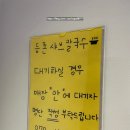 두촌 샤브칼국수
대기하실 경우
매장 "안"에 대기자
명단 작성 부탁드립니다